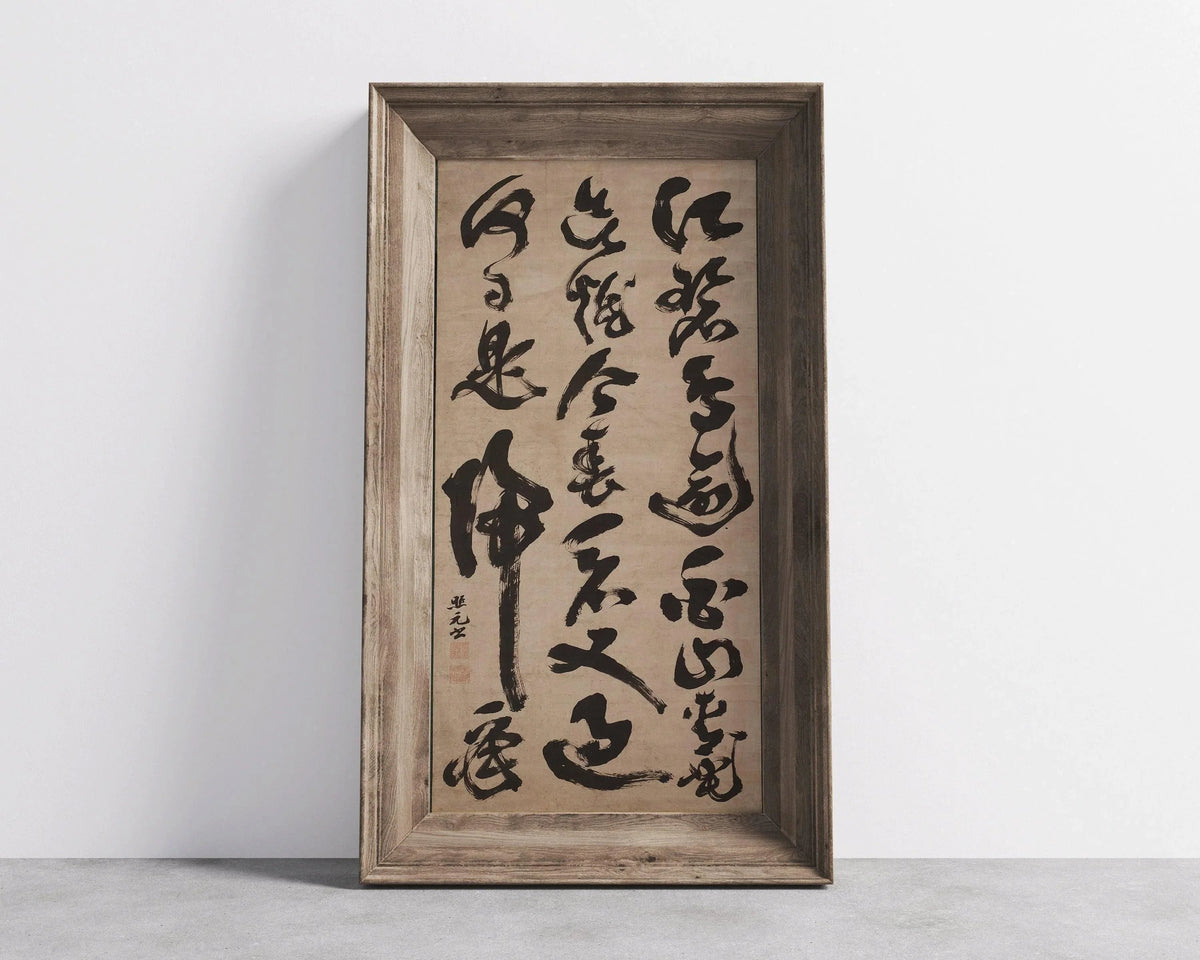 江碧鳥逾白山青花
欲燃今春看又過
何日是帰年
元書